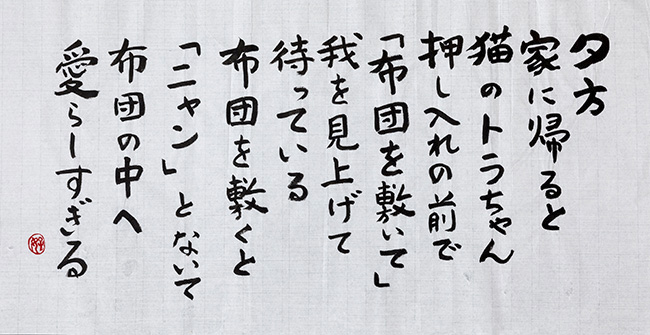 夕方
家に帰ると
猫のトラちゃん
押し入れの前で
「布団を敷いて」
我を見上げて
待っている
布団を敷くと
「ニャン」とないて
布団の中へ
愛らしすぎる